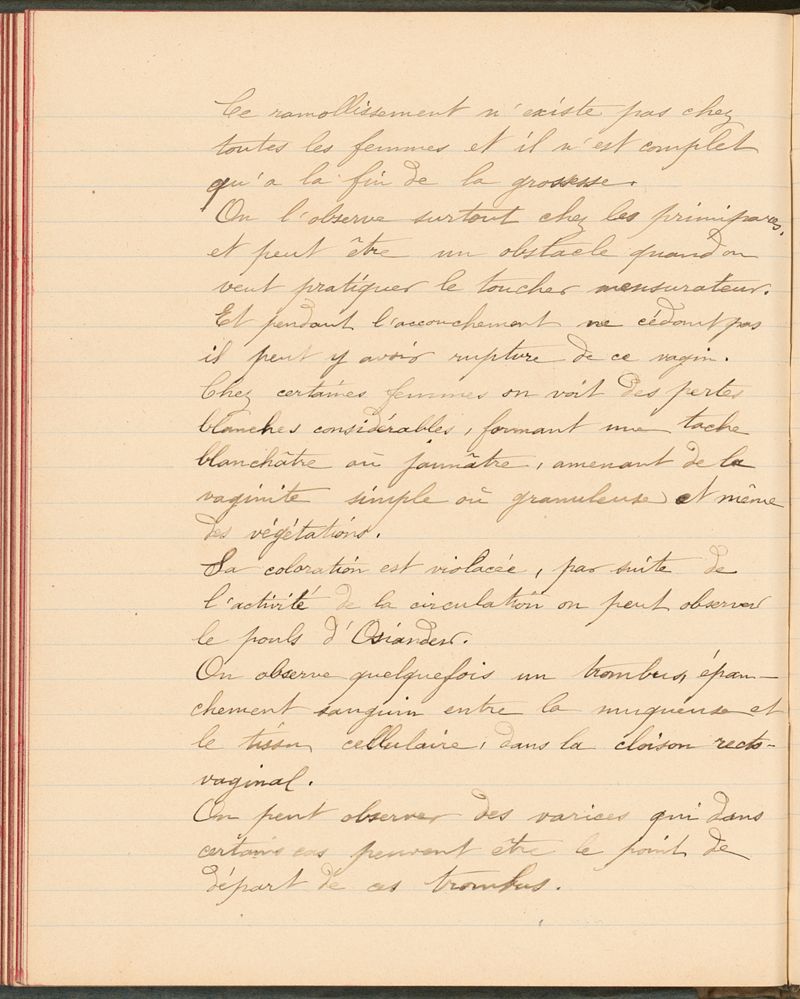 Ce ramollissement n'existe pas chez
toutes les femmes et il n'est complet
qu'a la fin de la grossesse.
On l'observe surtout chez les primipares,
et peut être un obstacle quand on
veut pratiquer le toucher mensurateur.
Et pendant l'accouchement ne cédant pas
il peut y avoir rupture de ce vagin.
Chez certaines femmes on voit des pertes
blanches considérables, formant une tache
blanchâtre où jaunâtre, amenant de la
vaginite simple où granuleuse et même
des végétations.
Sa coloration est violacée, par suite de
l'activité de la circulation on peut observer
le pouls d'Osiander.
On observe quelquefois un trombus, épan-
chement sanguin entre la muqueuse et
le tissu cellulaire, dans la cloison recto-
vaginal.
On peut observer des varices qui dans
certains cas peuvent être le point de
départ de ces trombus.